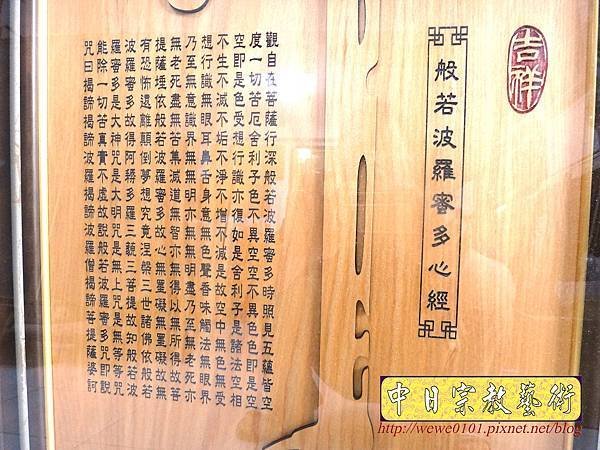 吉祥
般若波羅蜜多心經
觀自在菩薩行深般若波羅蜜多時照見五蘊皆空
度一切苦厄舍利子色不異空空不異色色即是空
空即是色受想行識亦復如是舍利子是諸法空相
不生不滅不垢不淨不增不減是故空中無色無受
想行識無眼耳鼻舌身意無色聲香味觸法無眼界
乃至無意識界無無明亦無無明盡乃至無老死亦
無老死盡無苦集滅道無智亦無得以無所得故菩
提薩埵依般若波羅蜜多故心無罣礙無罣礙故無
有恐怖遠離顛倒夢想究竟涅槃三世諸佛依般若
波羅蜜多故得阿耨多羅三藐三菩提故知般若波
羅蜜多是大神咒是大明咒是無上咒是無等等咒
能除一切苦真實不虛故說般若波羅蜜多咒即說
咒曰揭諦揭諦波羅揭諦波羅僧揭諦菩提薩婆訶
中日宗教藝術
http://wewe0101.pixnet.net/blog